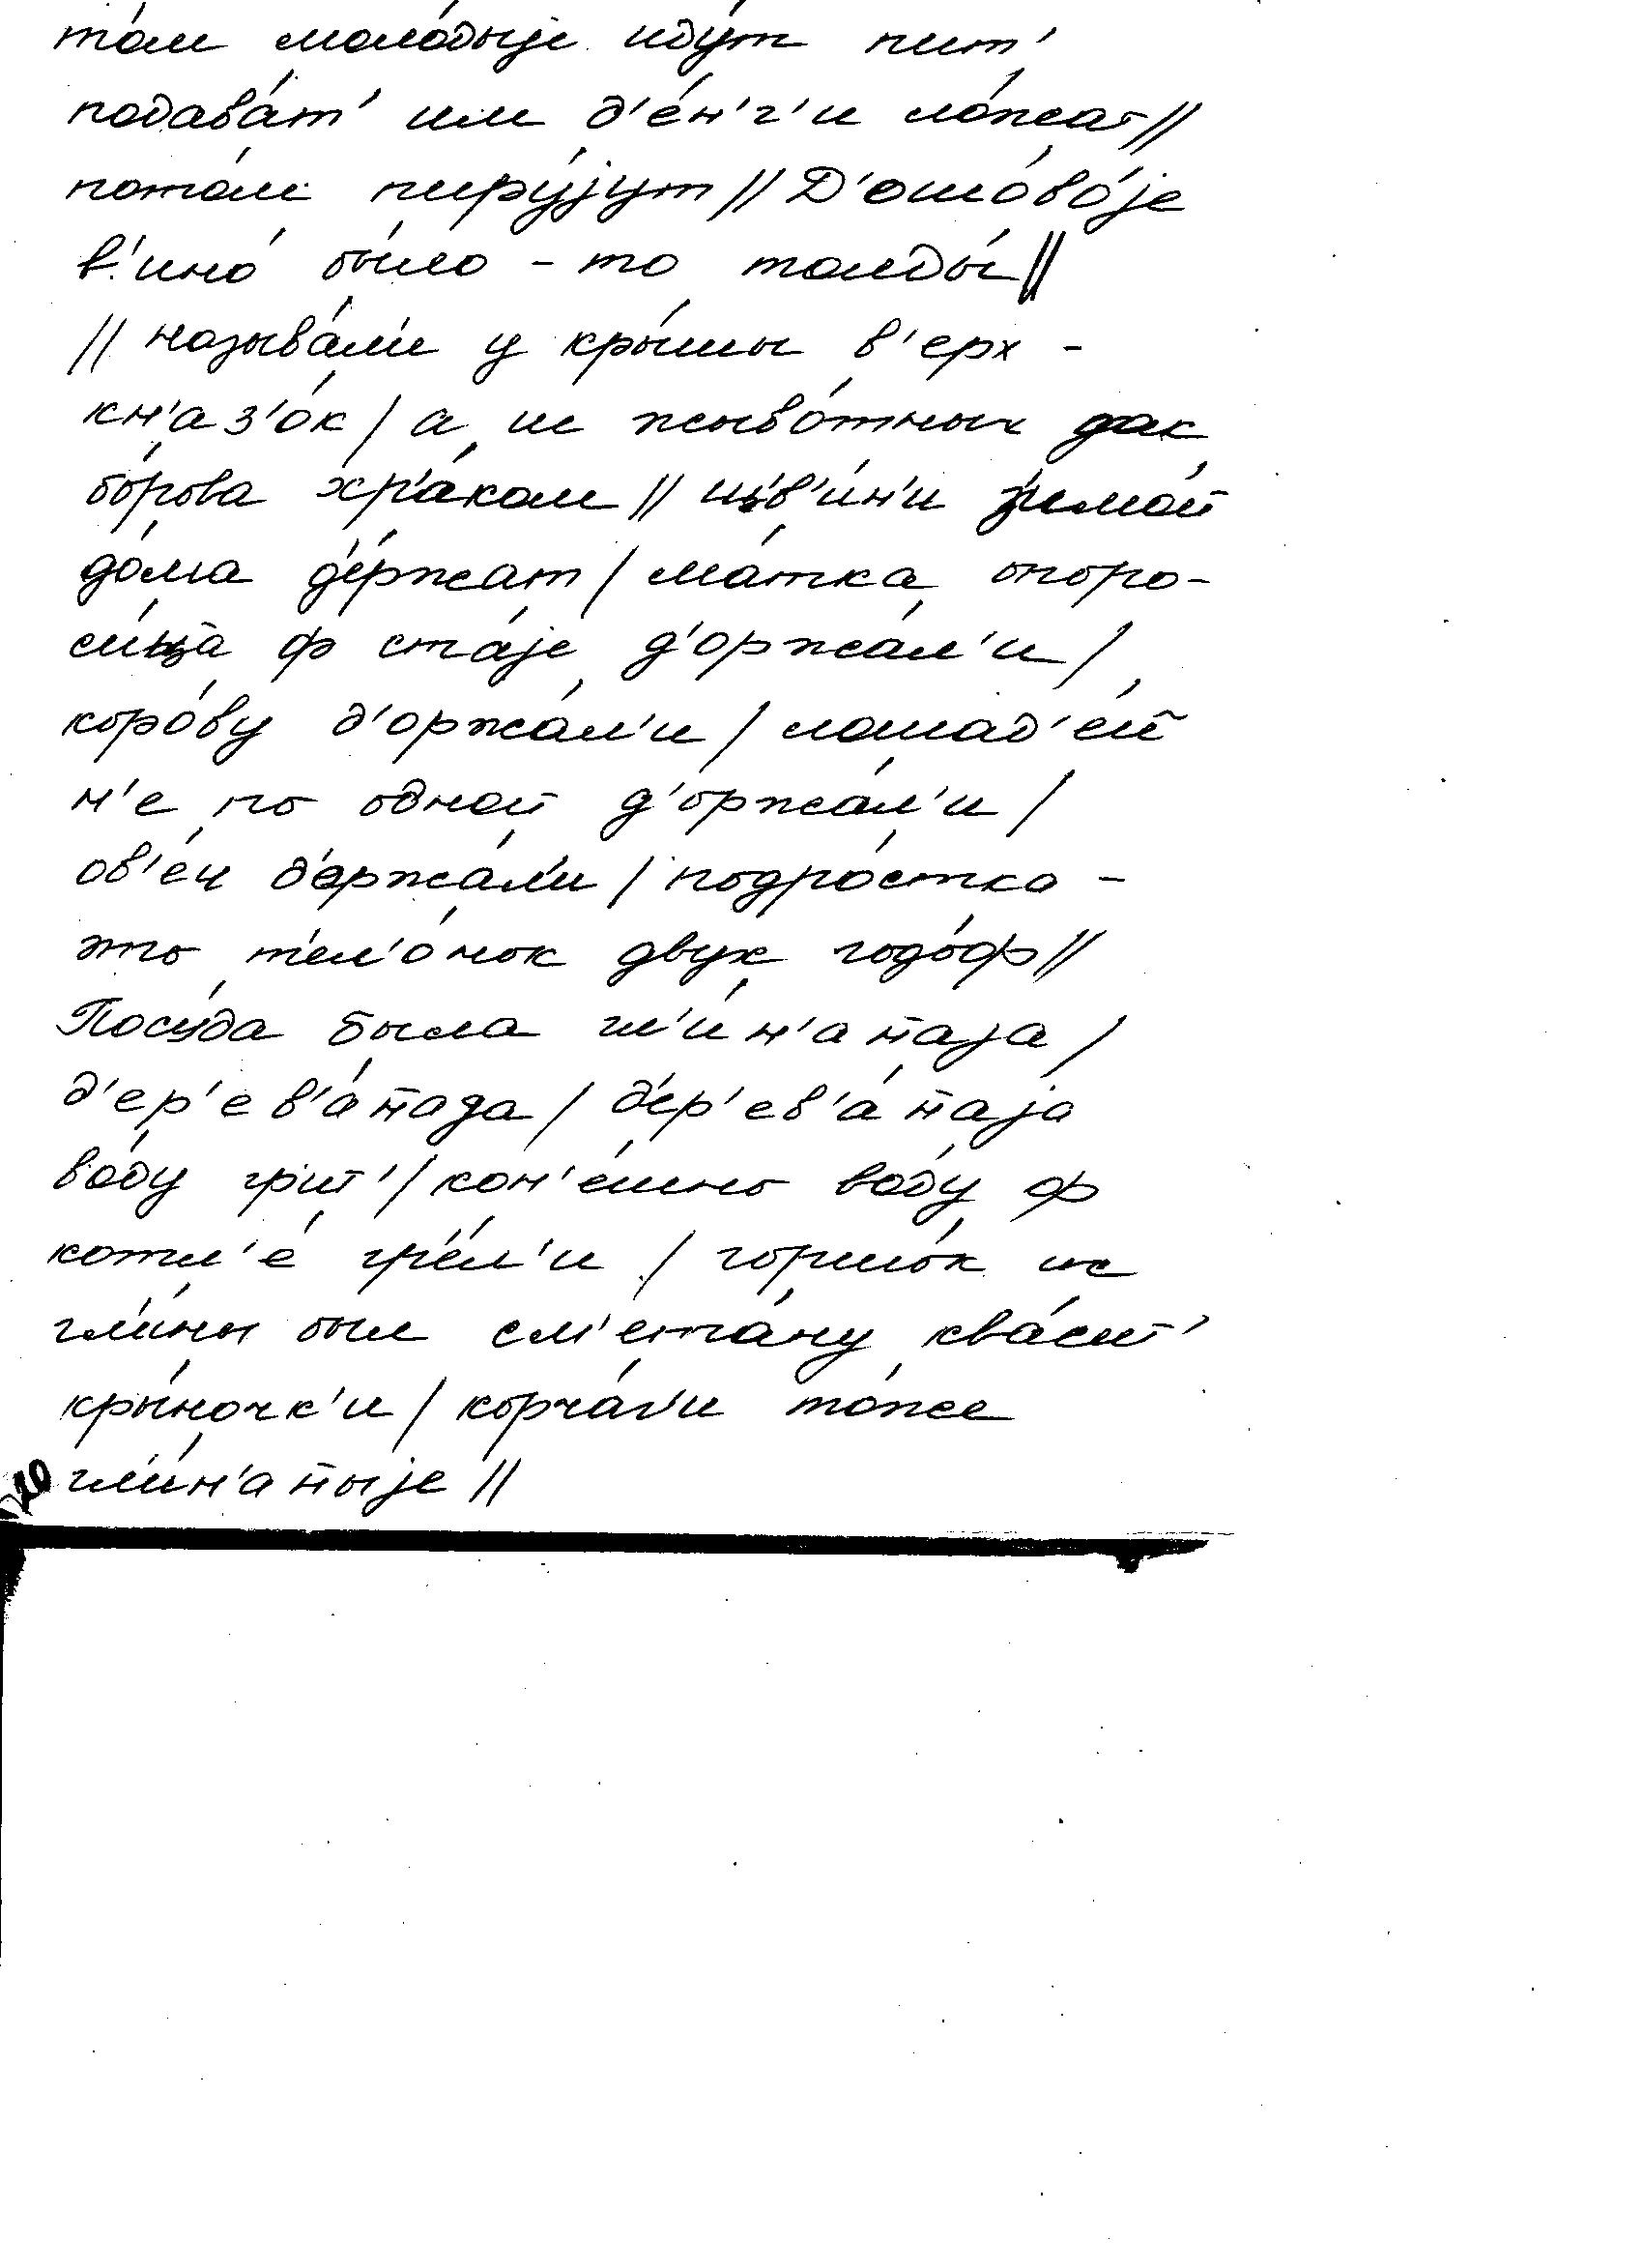 то́м моло́дыjе иду́т пит'
подава́т' им д'е́н'г'и ло́жат //
пото́м пиру́jут // Д'ошо́во́jе
в'ино́ бы́ло - то толды́ //
// называ́л'и у кры́шы в'ерх -
кн'аз'о́к / а ис жыво́тных дак
бо́рова хр'а́ком // ц'в'и́н'и з'имо́й
до́ма д'е́ржат / ма́тка опоро-
си́ца ф ста́jе д'оржа́л'и /
коро́ву д'оржа́л'и / лошад'е́й
н'е по одной д'оржа́л'и /
ов'е́ч д'ержа́л'и / подро́стка -
это т'ел'о́нок двух годо́ф //
Посу́да была гл'и́н'анаjа /
д'ер'ев'а́нада / д'ер'ев'а́наjа
во́ду грит' / кон'е́шно воду́ ф
котл'е́ гр'е́л'и / горшо́к ис
гл'и́ны был см'ета́ну ква́сит'
кры́ночк'и / корча́г'и то́же
гл'и́н'аныjе //